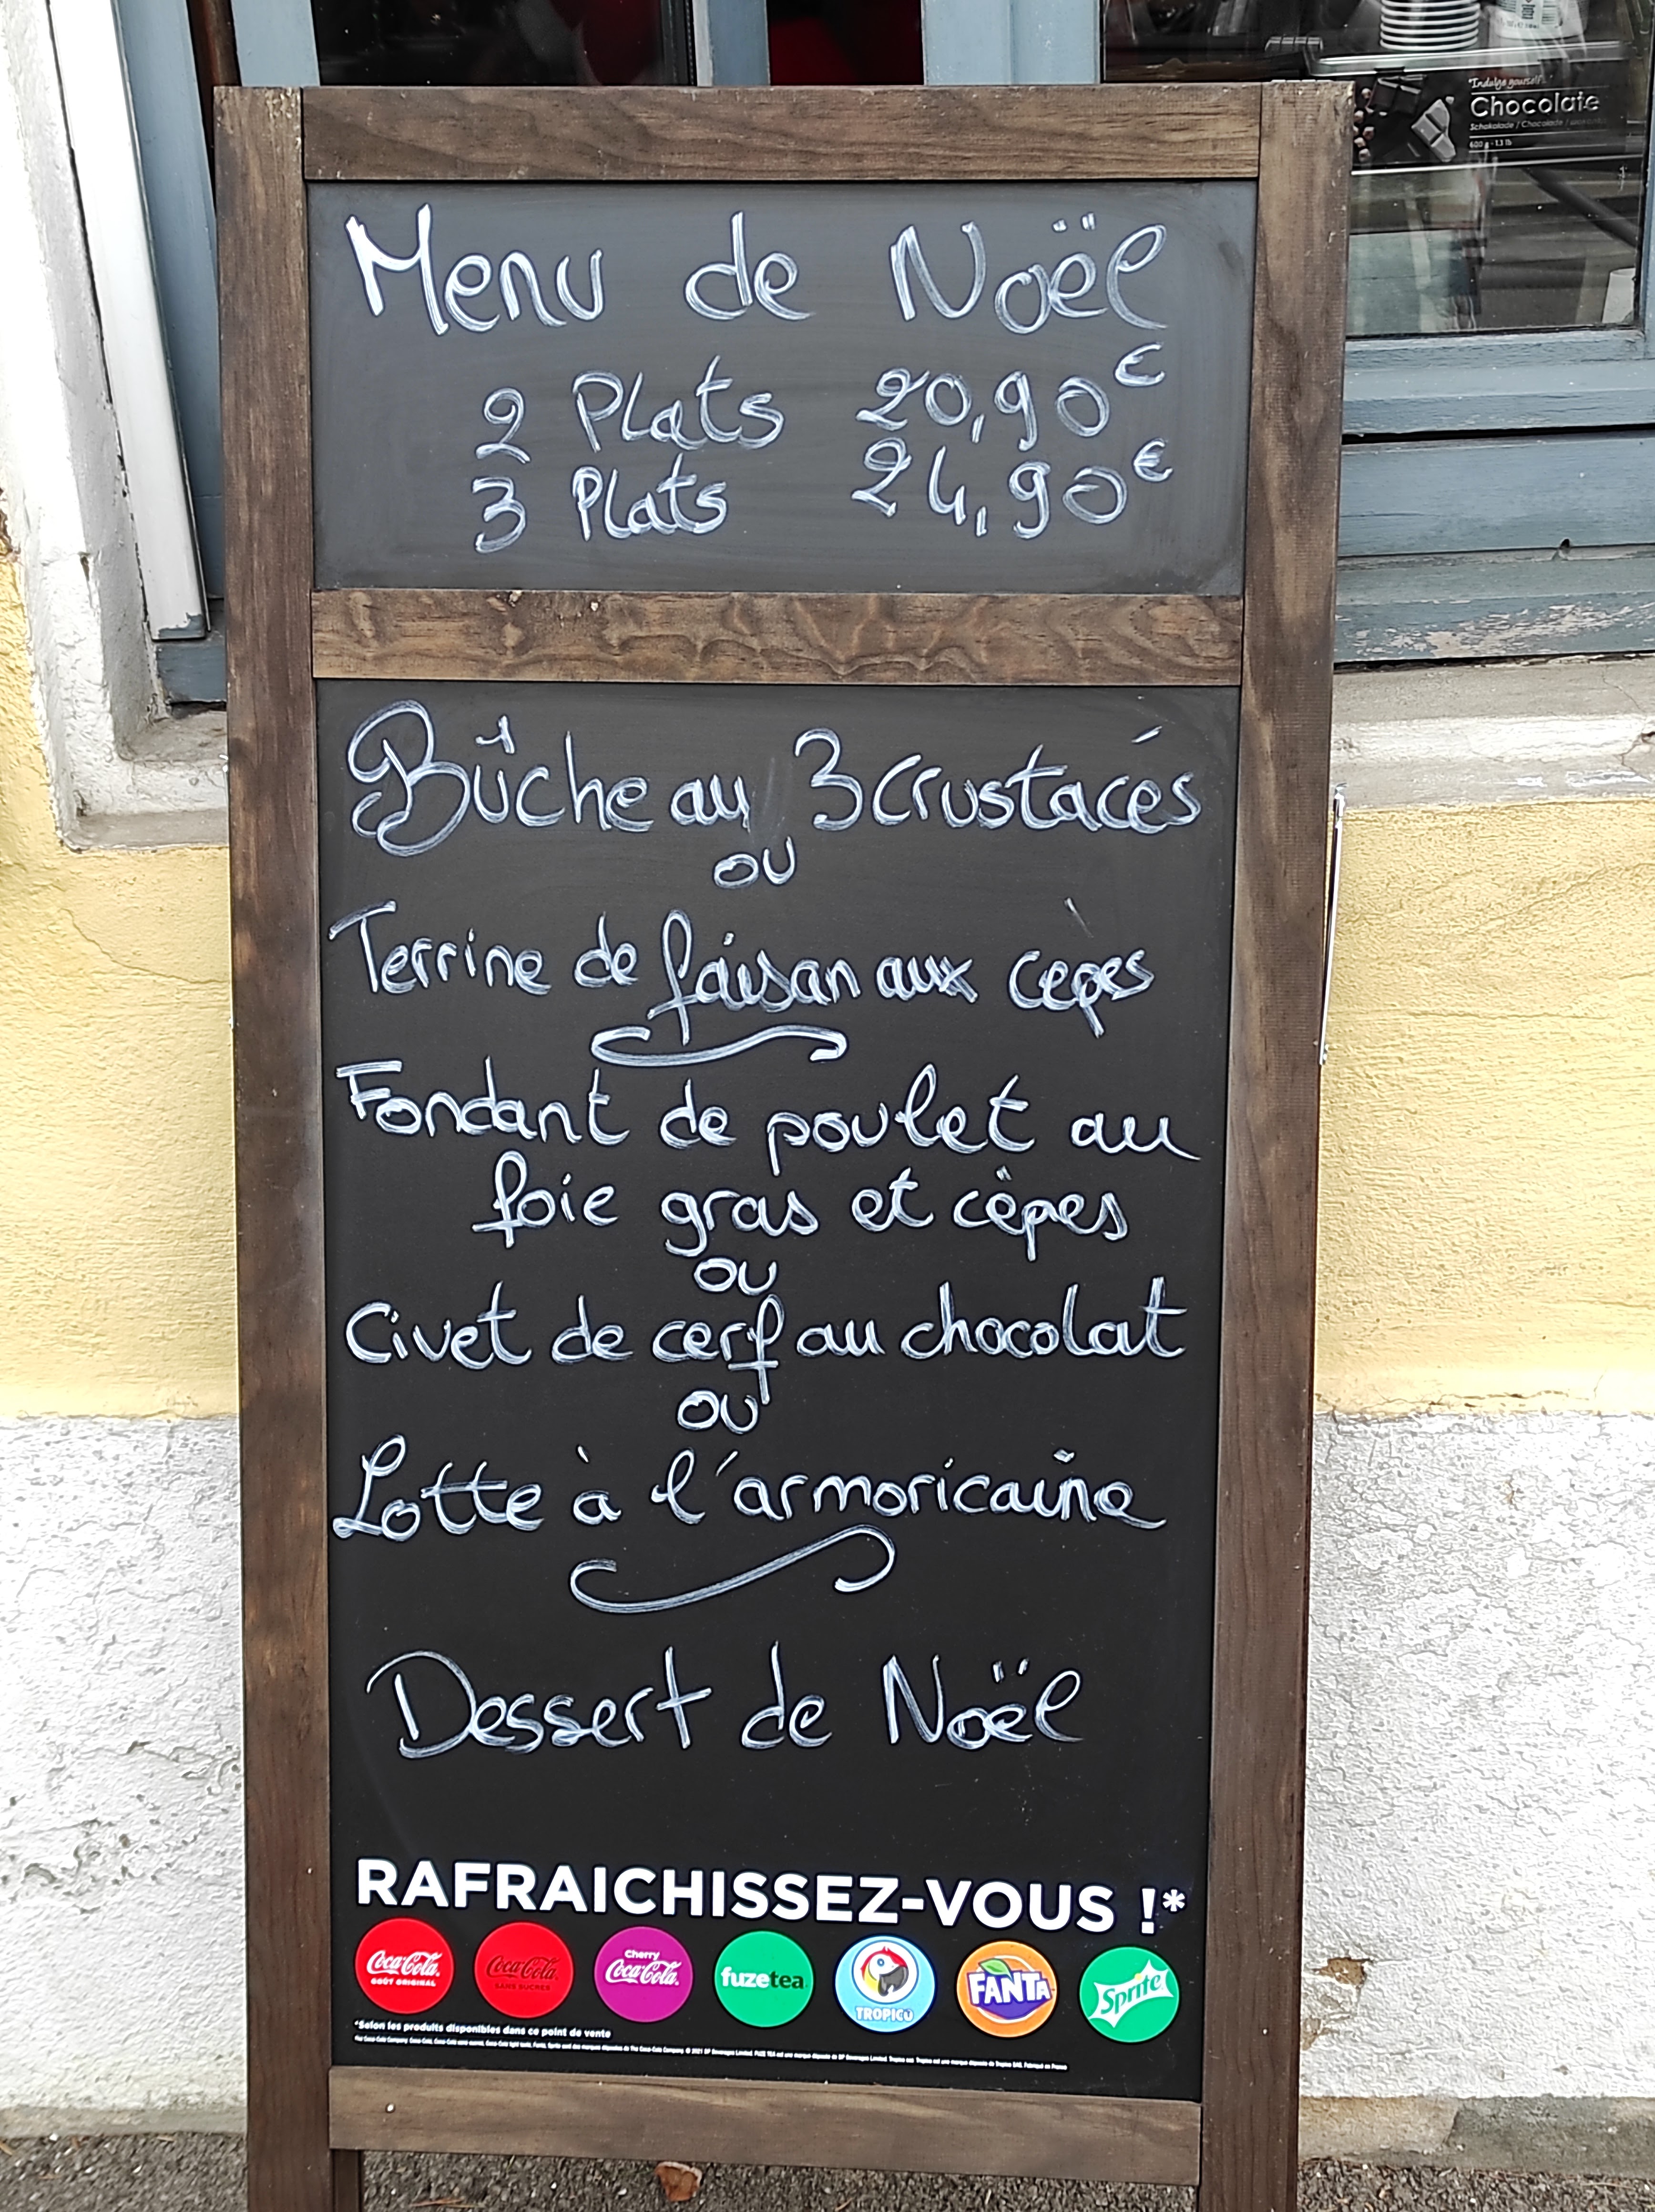 "Indulge yourself"
Chocolate
Schokolade / Chocolade /
600 g - 1.3 lb
Menu de Noël
2 Plats 20,90€
3 Plats 24,90€
Bûche au 3 crustacés
ou
Terrine de faisan aux cèpes
Fondant de poulet au
foie gras et cèpes
ou
Civet de cerf au chocolat
ou
Lotte à l'armoricaine
Dessert de Noël
RAFRAICHISSEZ-VOUS !*
Coca-Cola GOÛT ORIGINAL
Coca-Cola SANS SUCRES
Cherry Coca-Cola
fuzetea
TROPICO
FANTA
Sprite
*Selon les produits disponibles dans ce point de vente